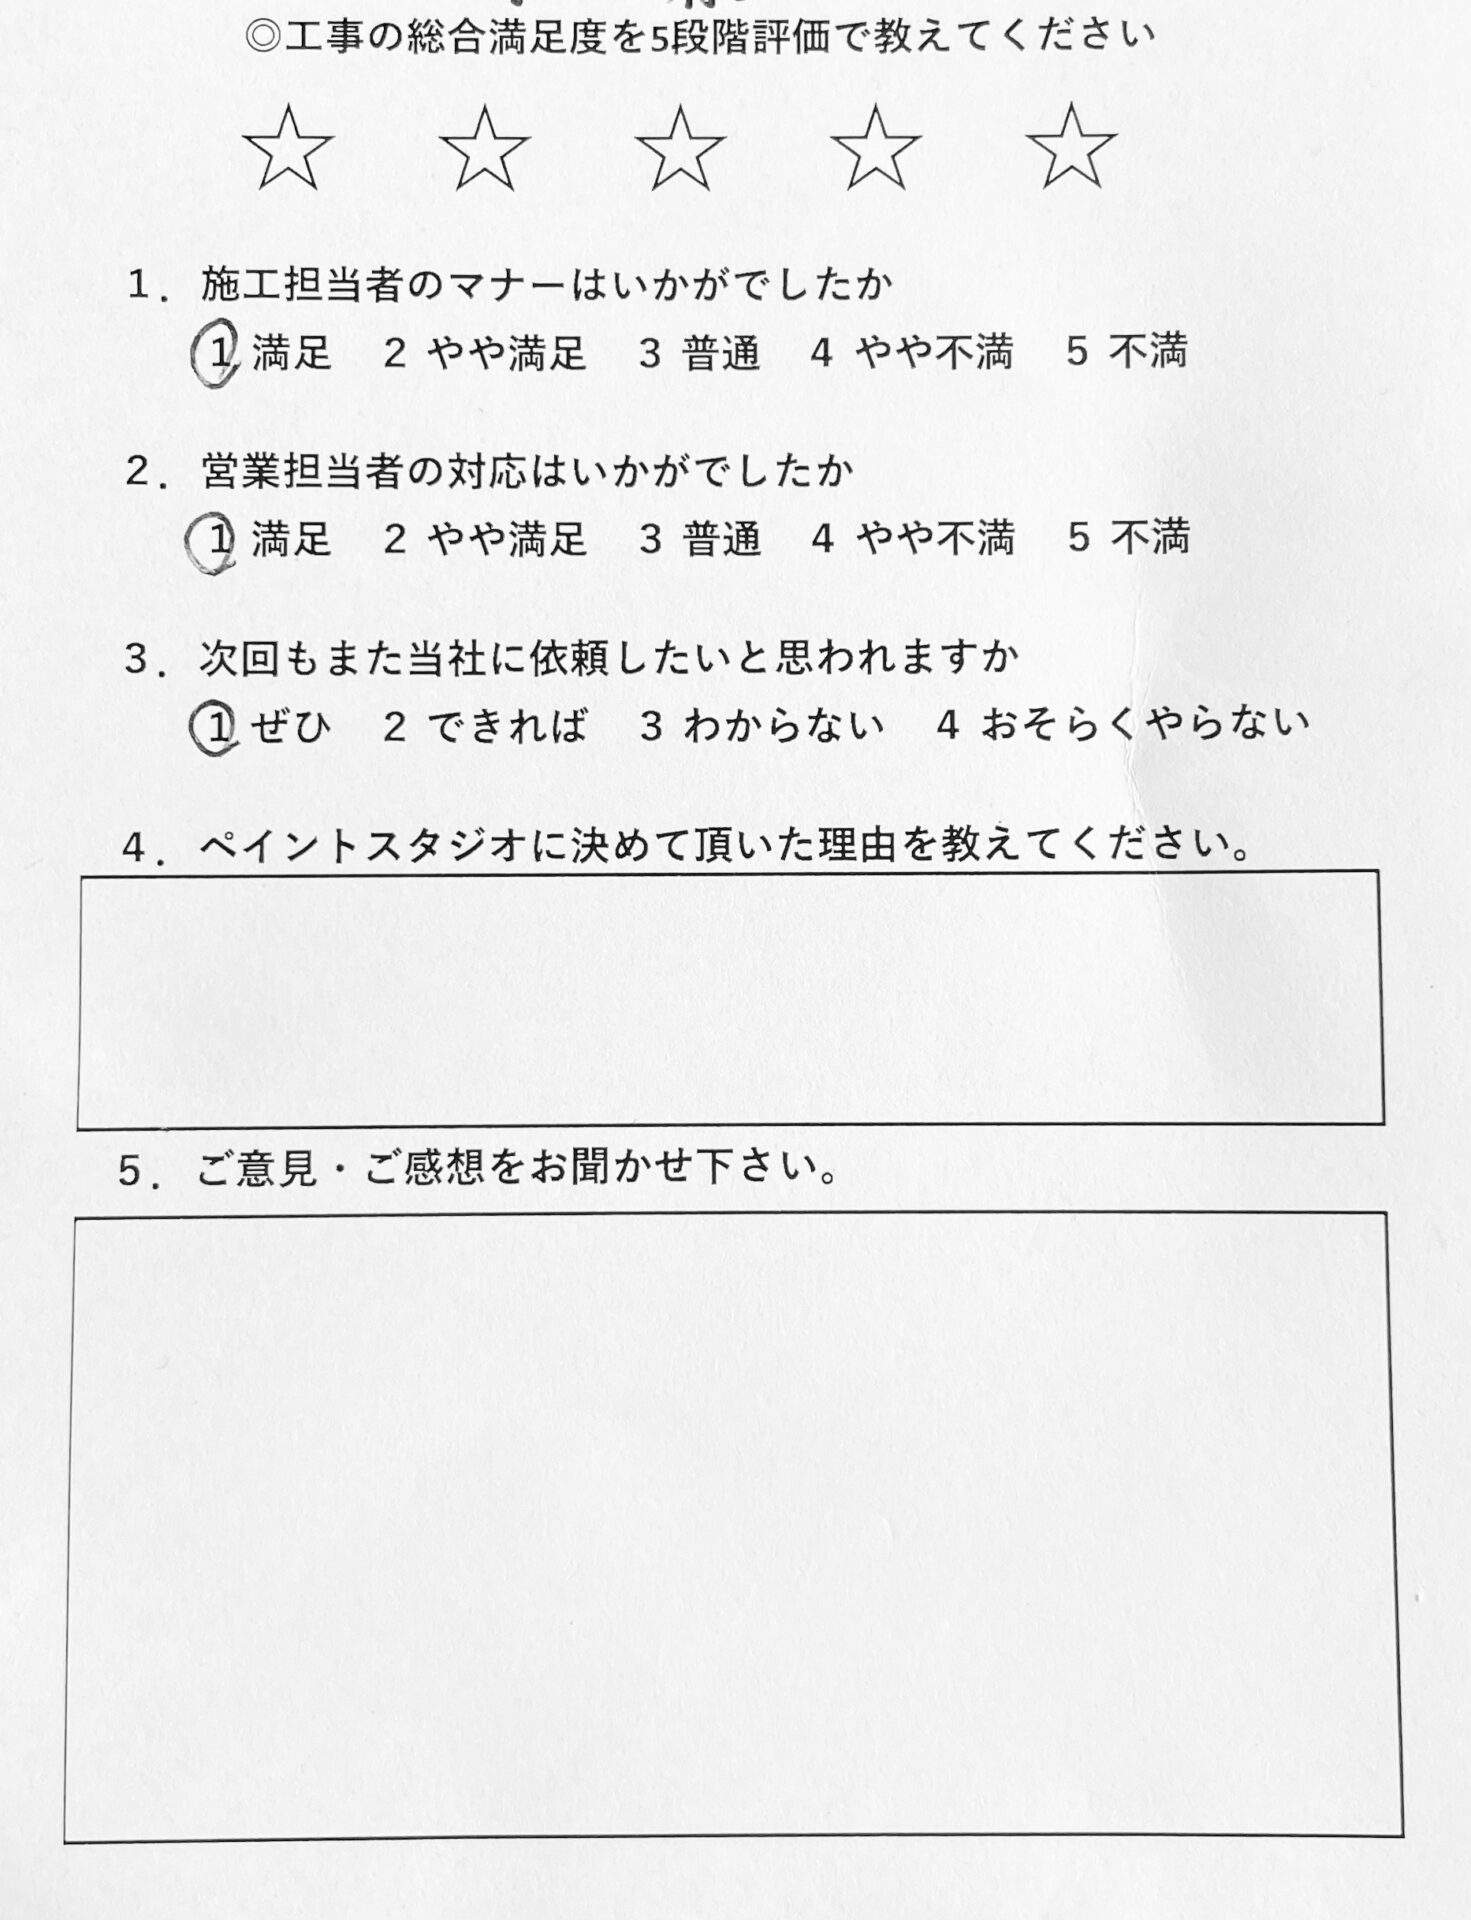 ◎工事の総合満足度を5段階評価で教えてください
☆ ☆ ☆ ☆ ☆
1. 施工担当者のマナーはいかがでしたか
1 満足 2 やや満足 3 普通 4 やや不満 5 不満
2. 営業担当者の対応はいかがでしたか
1 満足 2 やや満足 3 普通 4 やや不満 5 不満
3. 次回もまた当社に依頼したいと思われますか
1 ぜひ 2 できれば 3 わからない 4 おそらくやらない
4. ペイントスタジオに決めて頂いた理由を教えてください。
5. ご意見・ご感想をお聞かせ下さい。